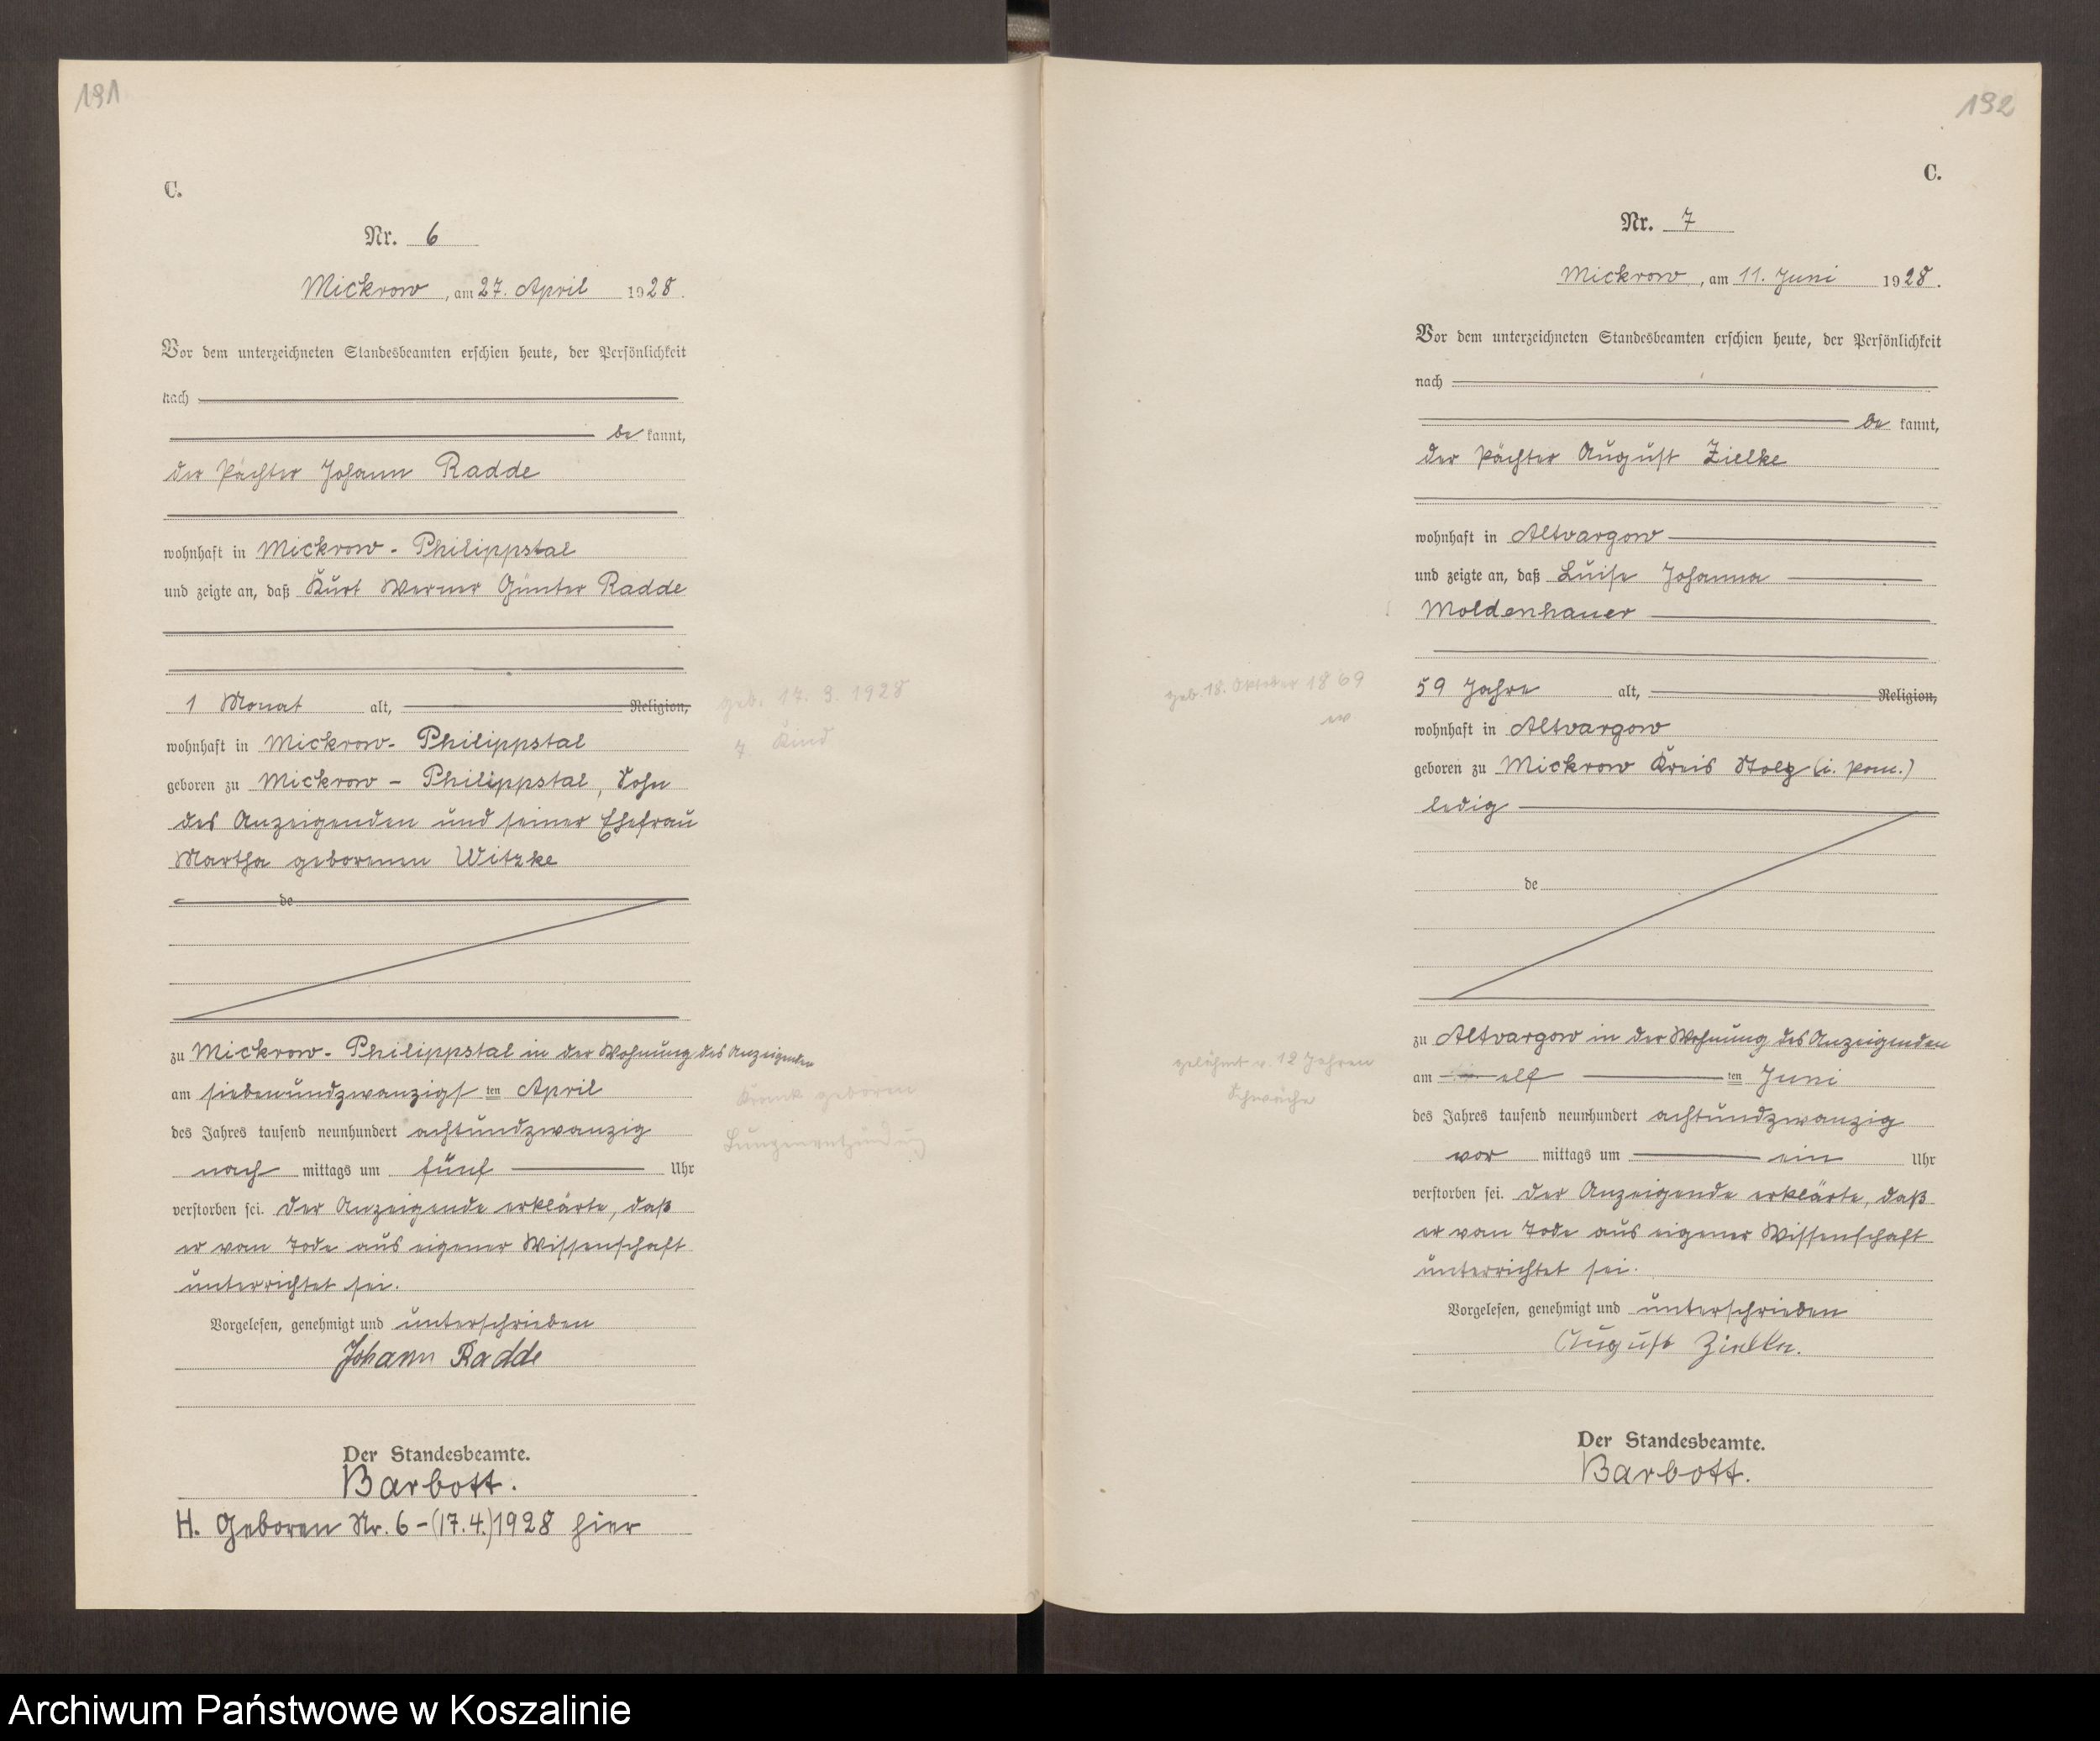 191
C.
Nr. 6
Mickrow, am 27. April 1928.
Vor dem unterzeichneten Standesbeamten erschien heute, der Persönlichkeit
nach
be kannt,
der Pächter Johann Radde
wohnhaft in Mickrow - Philippstal
und zeigte an, daß Kurt Werner Günter Radde
1 Monat alt, Religion,
geb. 17. 3. 1928
wohnhaft in Mickrow - Philippstal
7. Kind
geboren zu Mickrow - Philippstal, Sohn
des Anzeigenden und seiner Ehefrau
Martha geborenen Witzke
de
zu Mickrow - Philippstal in der Wohnung des Anzeigenden
am siebenundzwanzigs ten April
Krank geboren
des Jahres tausend neunhundert achtundzwanzig
Lungenentzündung
nach mittags um fünf Uhr
verstorben sei. Der Anzeigende erklärte, daß
er vom Tode aus eigener Wissenschaft
unterrichtet sei.
Vorgelesen, genehmigt und unterschrieben
Johann Radde
Der Standesbeamte.
Barbott.
H. Geboren Nr. 6 - (17.4.) 1928 hier
192
C.
Nr. 7
Mickrow, am 11. Juni 1928.
Vor dem unterzeichneten Standesbeamten erschien heute, der Persönlichkeit
nach
be kannt,
der Pächter August Zielke
wohnhaft in Altvargow
und zeigte an, daß Luise Johanna
Moldenhauer
geb. 18. Oktober 1869
59 Jahre alt, Religion,
ev
wohnhaft in Altvargow
geboren zu Mickrow Kreis Stolp (i. Pom.)
ledig
de
zu Altvargow in der Wohnung des Anzeigenden
gelähmt v. 12 Jahren
am elf ten Juni
Schwäche
des Jahres tausend neunhundert achtundzwanzig
vor mittags um ein Uhr
verstorben sei. Der Anzeigende erklärte, daß
er vom Tode aus eigener Wissenschaft
unterrichtet sei.
Vorgelesen, genehmigt und unterschrieben
August Zielke.
Der Standesbeamte.
Barbott.
Archiwum Państwowe w Koszalinie